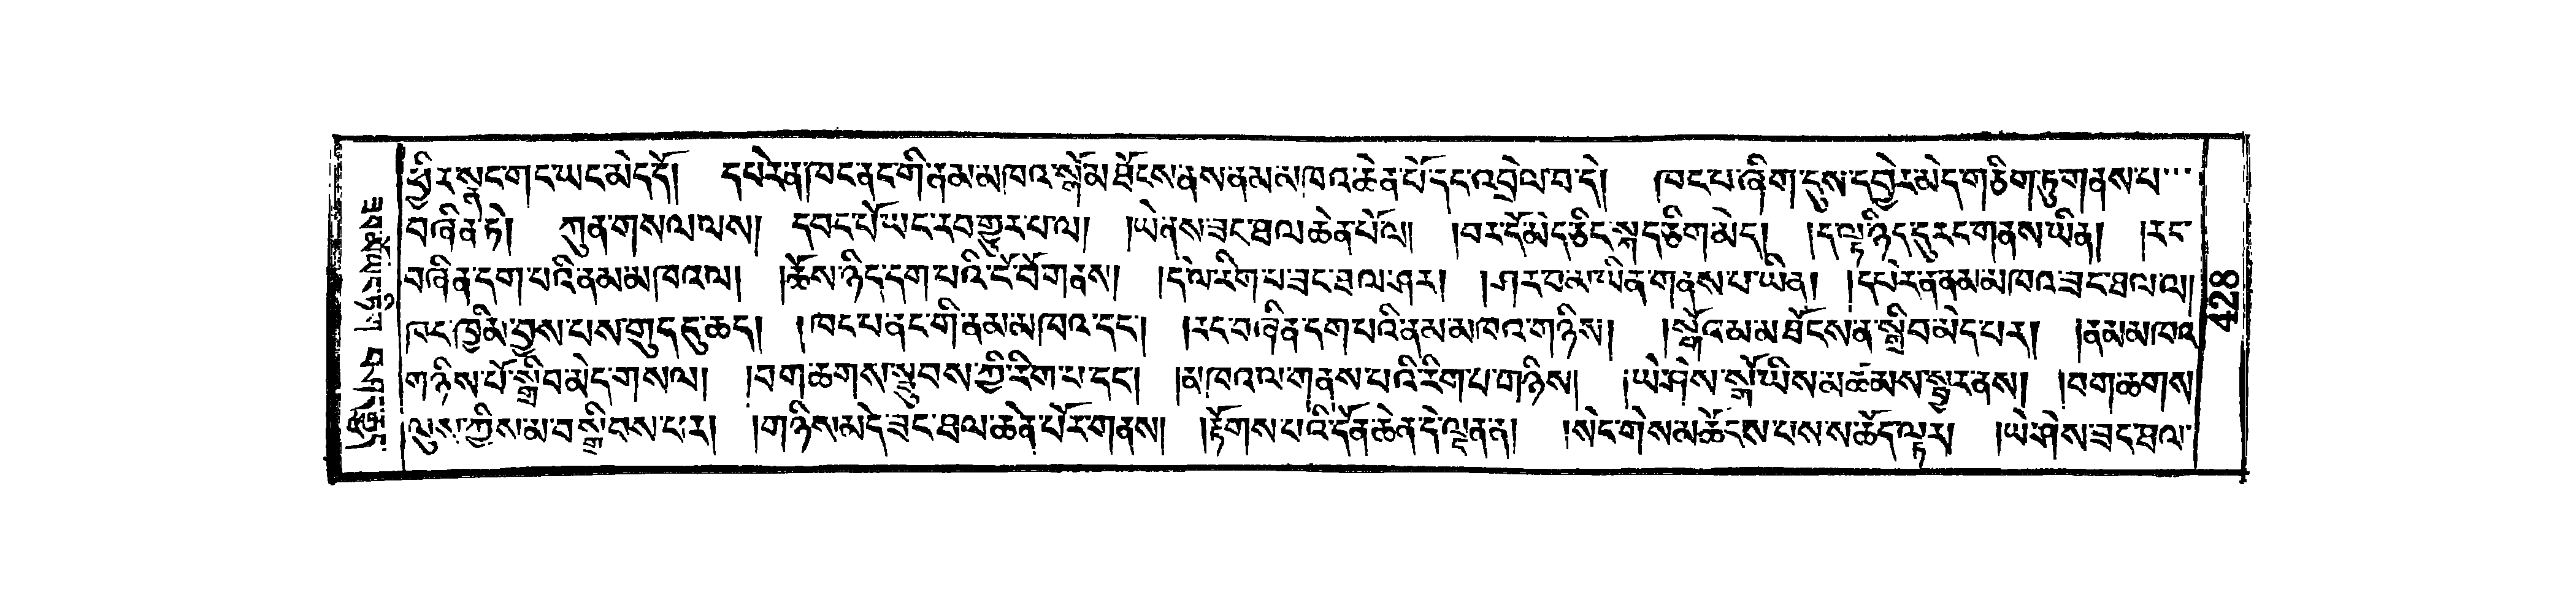 ཕྱིར་སྣང་གང་ཡང་མེད་དོ། དཔེར་ན་ཁང་ནང་གི་ནམ་མཁའ་སྒོ་མ་ཐོངས་ནས་ནམ་མཁའ་ཆེན་པོ་དང་འབྲེལ་བ་དེ། །ཁང་པ་ཞིག་དུས་དབྱེར་མེད་གཅིག་ཏུ་གནས་པ་་་
བཞིན་ཏེ། ཀུན་གསལ་ལས། དབང་པོ་ཡང་རབ་གྱུར་པ་ལ། །ཡེ་ནས་ཟང་ཐལ་ཆེན་པོ་ལ། །བར་དོ་མེད་ཅིང་སྐད་ཅིག་མེད། །ད་ལྟ་ཉིད་དུ་རང་གནས་ཡིན། །རང་
བཞིན་དག་པའི་ནམ་མཁའ་ལ། །ཆོས་ཉིད་དག་པའི་ངོ་བོ་གནས། །དེ་ལ་རིག་པ་ཟང་ཐལ་ཤར། །ཤར་བ་མ་ཡིན་གནས་པ་ཡིན། །དཔེར་ན་ནམ་མཁའ་ཟང་ཐལ་ལ།
ཁང་ཁྱིམ་བྱས་པས་གུད་དུ་ཆད། །ཁང་པ་ནང་གི་ནམ་མཁའ་དང་། །རང་བཞིན་དག་པའི་ནམ་མཁའ་གཉིས། །སྒོ་འམ་མ་ཐོངས་ན་སྒྲིབ་མེད་པར། །ནམ་མཁའ་
གཉིས་པོ་སྒྲིབ་མེད་གསལ། །བག་ཆགས་སྦུབས་ཀྱི་རིག་པ་དང་། །མཁའ་ལ་གནས་པའི་རིག་པ་གཉིས། །ཡེ་ཤེས་སྒྲོ་ཡིས་མཚམས་སྦྱར་ནས། །བག་ཆགས་
ལུས་ཀྱིས་མ་བསྒྲིབས་པར། །གཉིས་མེད་ཟང་ཐལ་ཆེན་པོར་གནས། །རྟོགས་པའི་དོན་ཆེན་དེ་ལྡན་ན། །སེང་གེས་མཆོངས་པས་ས་ཆོད་ལྟར། །ཡེ་ཤེས་ཟང་ཐལ་